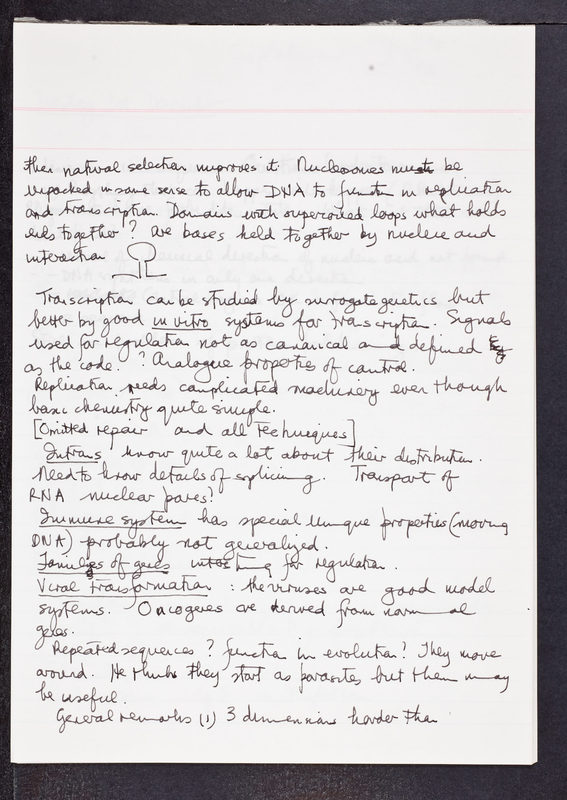 then natural selection improves it. Nucleosomes must be
unpacked in some sense to allow DNA to function in replication
and transcription. Domains with supercoiled loops what holds
ends together? are bases held together by nucleic acid
interaction
Transcription can be studied by surrogate genetics but
better by good in vitro systems for transcription. Signals
used for regulation not as canonical and defined
as the code. ? Analogue properties of control.
Replication needs complicated machinery even though
basic chemistry quite simple.
[Omitted repair and all Techniques]
Introns know quite a lot about their distribution.
Need to know details of splicing. Transport of
RNA nuclear pores?
Immune system has special unique properties (moving
DNA) probably not generalized.
Families of genes interesting for regulation.
Viral transformation : the viruses are good model
systems. Oncogenes are derived from normal
genes.
Repeated sequences ? function in evolution? They move
around. He thinks they start as parasites but then may
be useful.
General remarks (1) 3 dimensions harder than